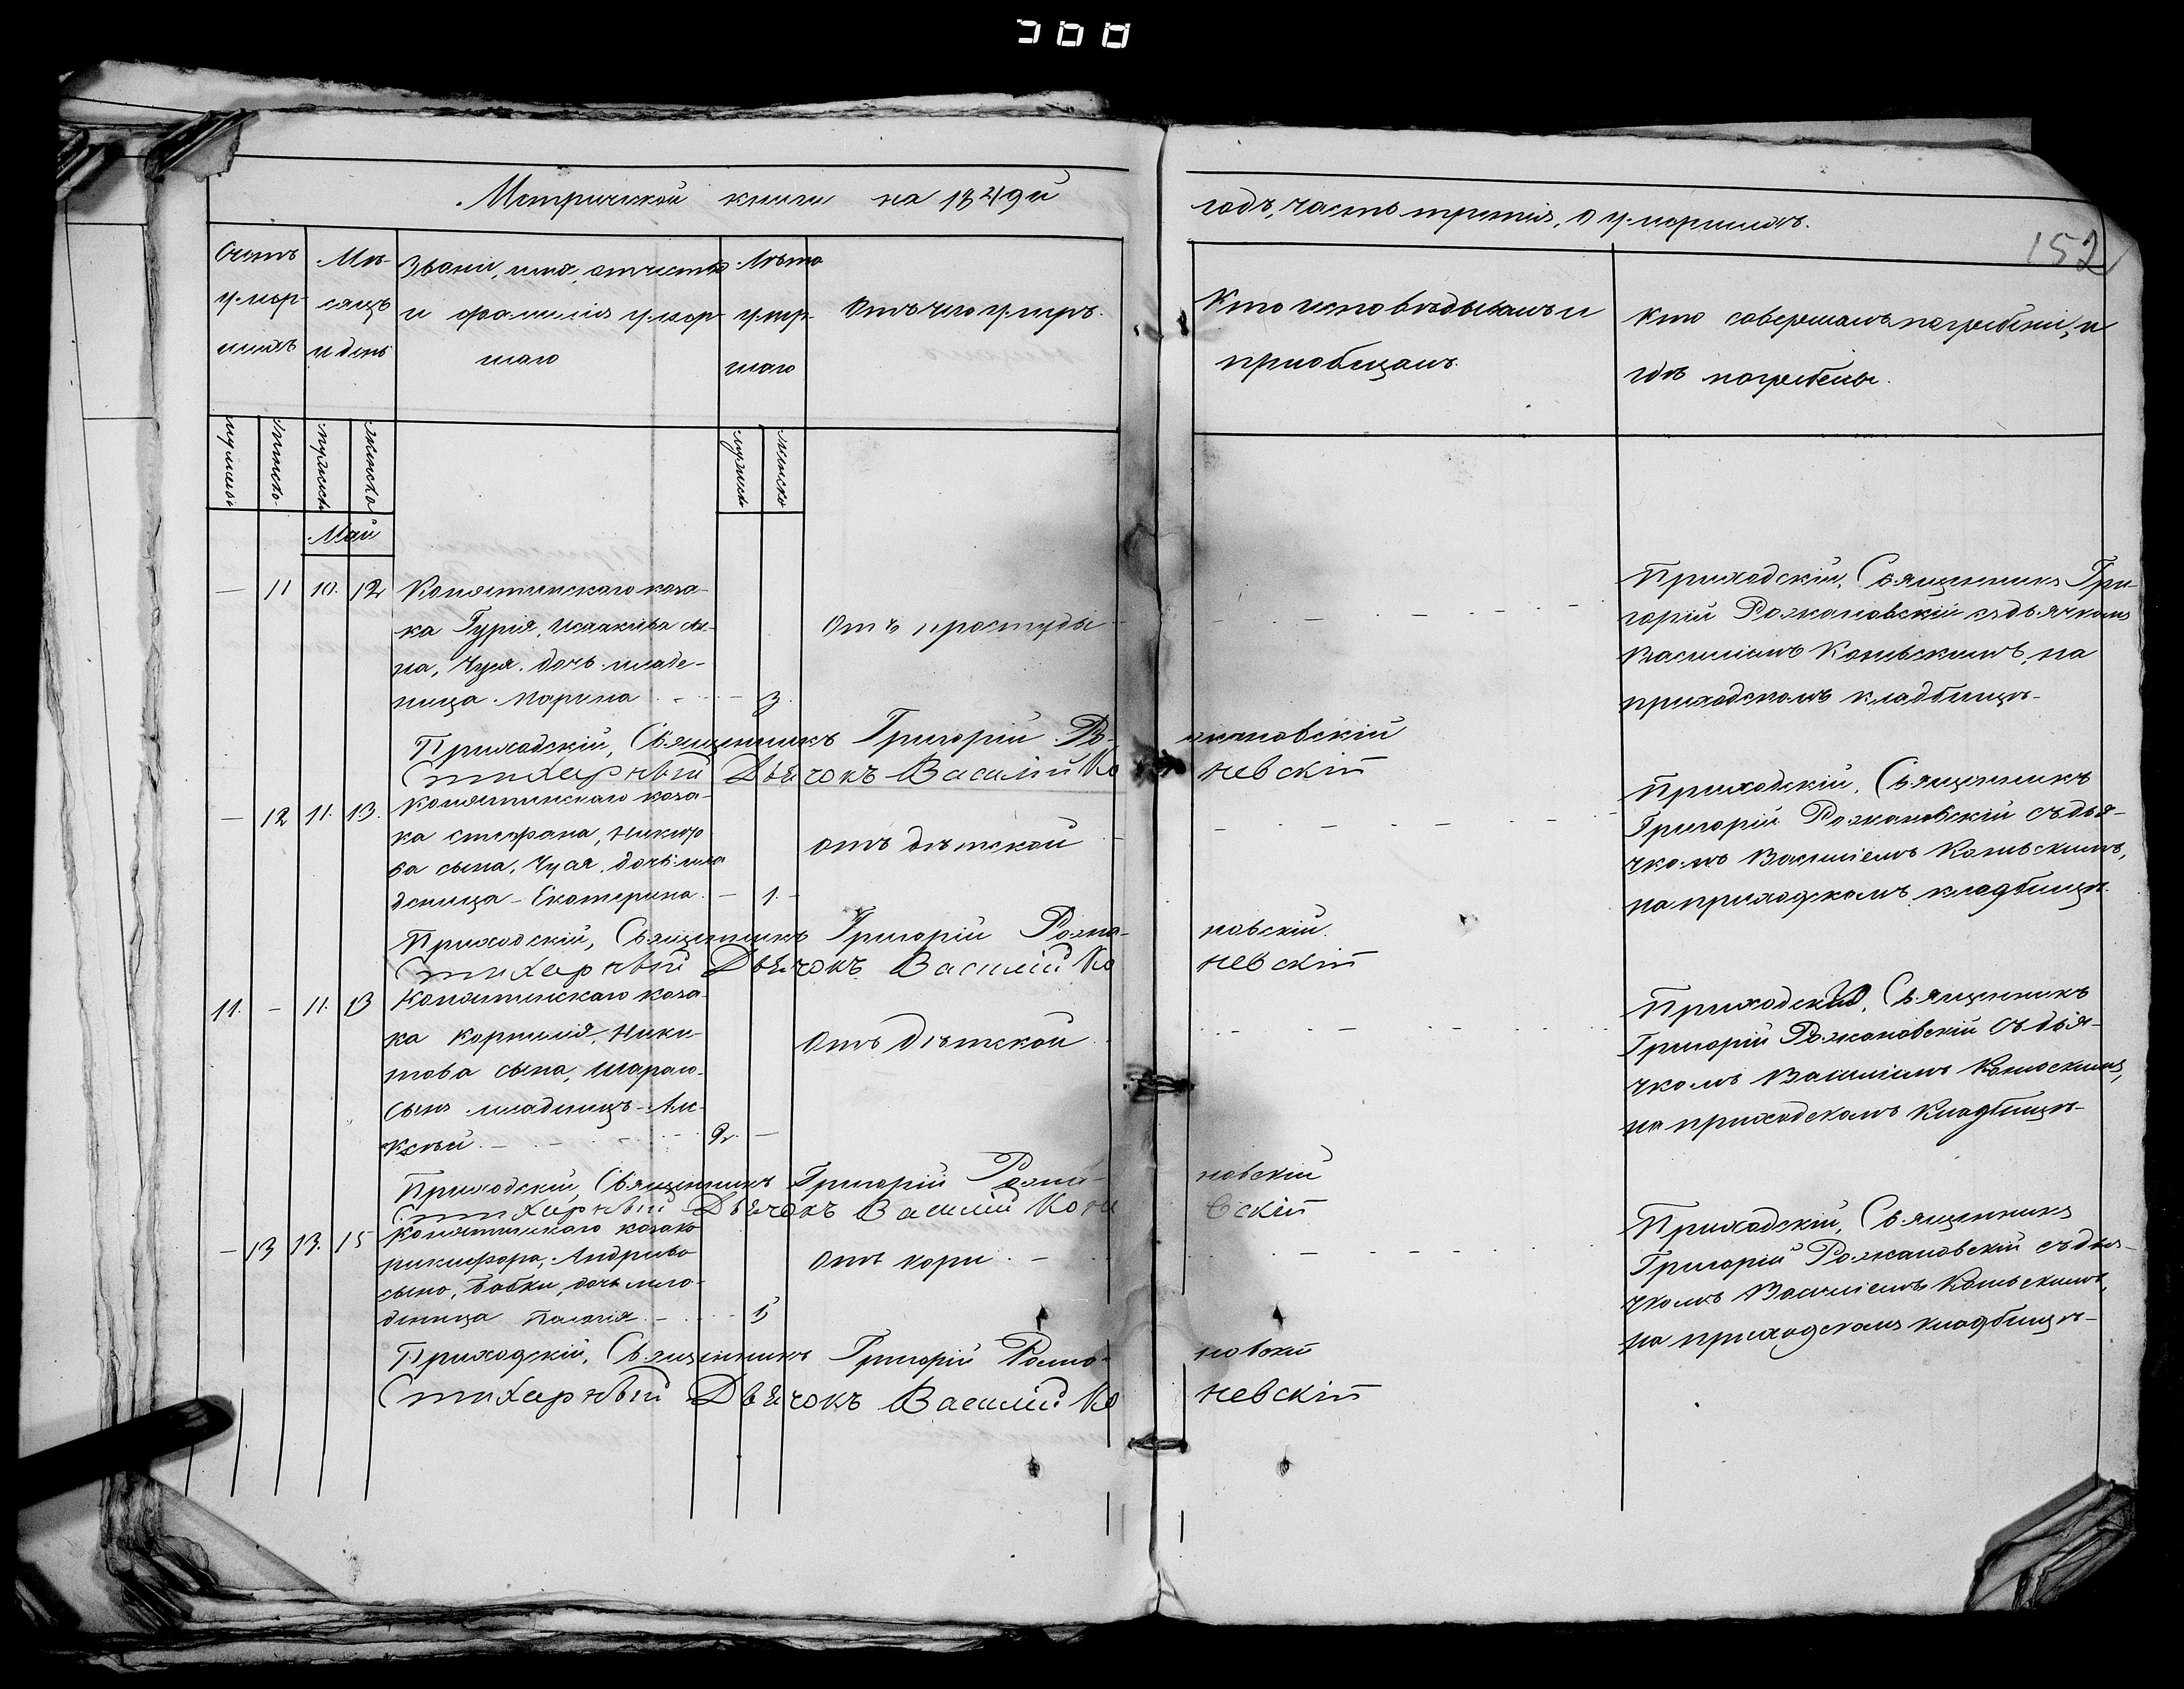 300
Метрической книги на 1849й
годъ, часть третія, о умершихъ.
152
Счетъ умер- шихъ
Мѣ- сяцъ и день
Званіе, имя, отчество и фамилія умер- шаго
Лѣта умер- шаго
Отъ чего умеръ.
Кто исповѣдывалъ и пріобщалъ.
Кто совершалъ погребеніе, и гдѣ погребены.
Май
— 11 10. 12 Коняtинскаго коза-
ка Гурія, Исаакіева сы-
на, Чуя. дочь младе-
ница Марина - - - 3.
Отъ простуды
Приходскій, Священникъ Гри-
горій Рожановскій съ дьячкомъ
Василіемъ Коневскимъ, на
приходскомъ кладбищѣ-
Приходскій, Священникъ Григорій Ро- жановскій
Стихарный Дьячокъ Василій Ко невскій
— 12 11. 13. Конятинскаго коза-
ка Стефана, Никифо
ва сына, Чуя. дочь мла
деница - Екатерина. — 1. -
отъ дѣтской
Приходскій, Священникъ
Григорій Рожановскій съ дья-
чкомъ Василіемъ Коневскимъ,
на приходскомъ кладбищѣ
Приходскій, Священникъ Григорій Рожа- новскій.
Стихарный Дьячокъ Василій Ко невскій
11. - 11. 13 Конятинскаго коза-
ка Корнилія, Ники-
това сына, Шараго-
сынъ младенецъ - Але-
ксѣй - - - 2. —
Отъ дѣтской
Приходскій, Священникъ
Григорій Рожановскій съ дья-
чкомъ Василіемъ Коневскимъ,
на приходскомъ кладбищѣ-
Приходскій, Священникъ Григорій Рожа- новскій
Стихарный Дьячокъ Василій Коне вскій
— 13 13. 15 Конятинскаго козака
Никифора, Андреева
сына, Бабки, дочь мла-
деница Пелагія. - - - 1
Отъ кори. —
Приходскій, Священникъ
Григорій Рожановскій съ дья-
чкомъ Василіемъ Коневскимъ,
на приходскомъ кладбищѣ-
Приходскій, Священникъ Григорій Рожа- новскій
Стихарный Дьячокъ Василій Ко невскій